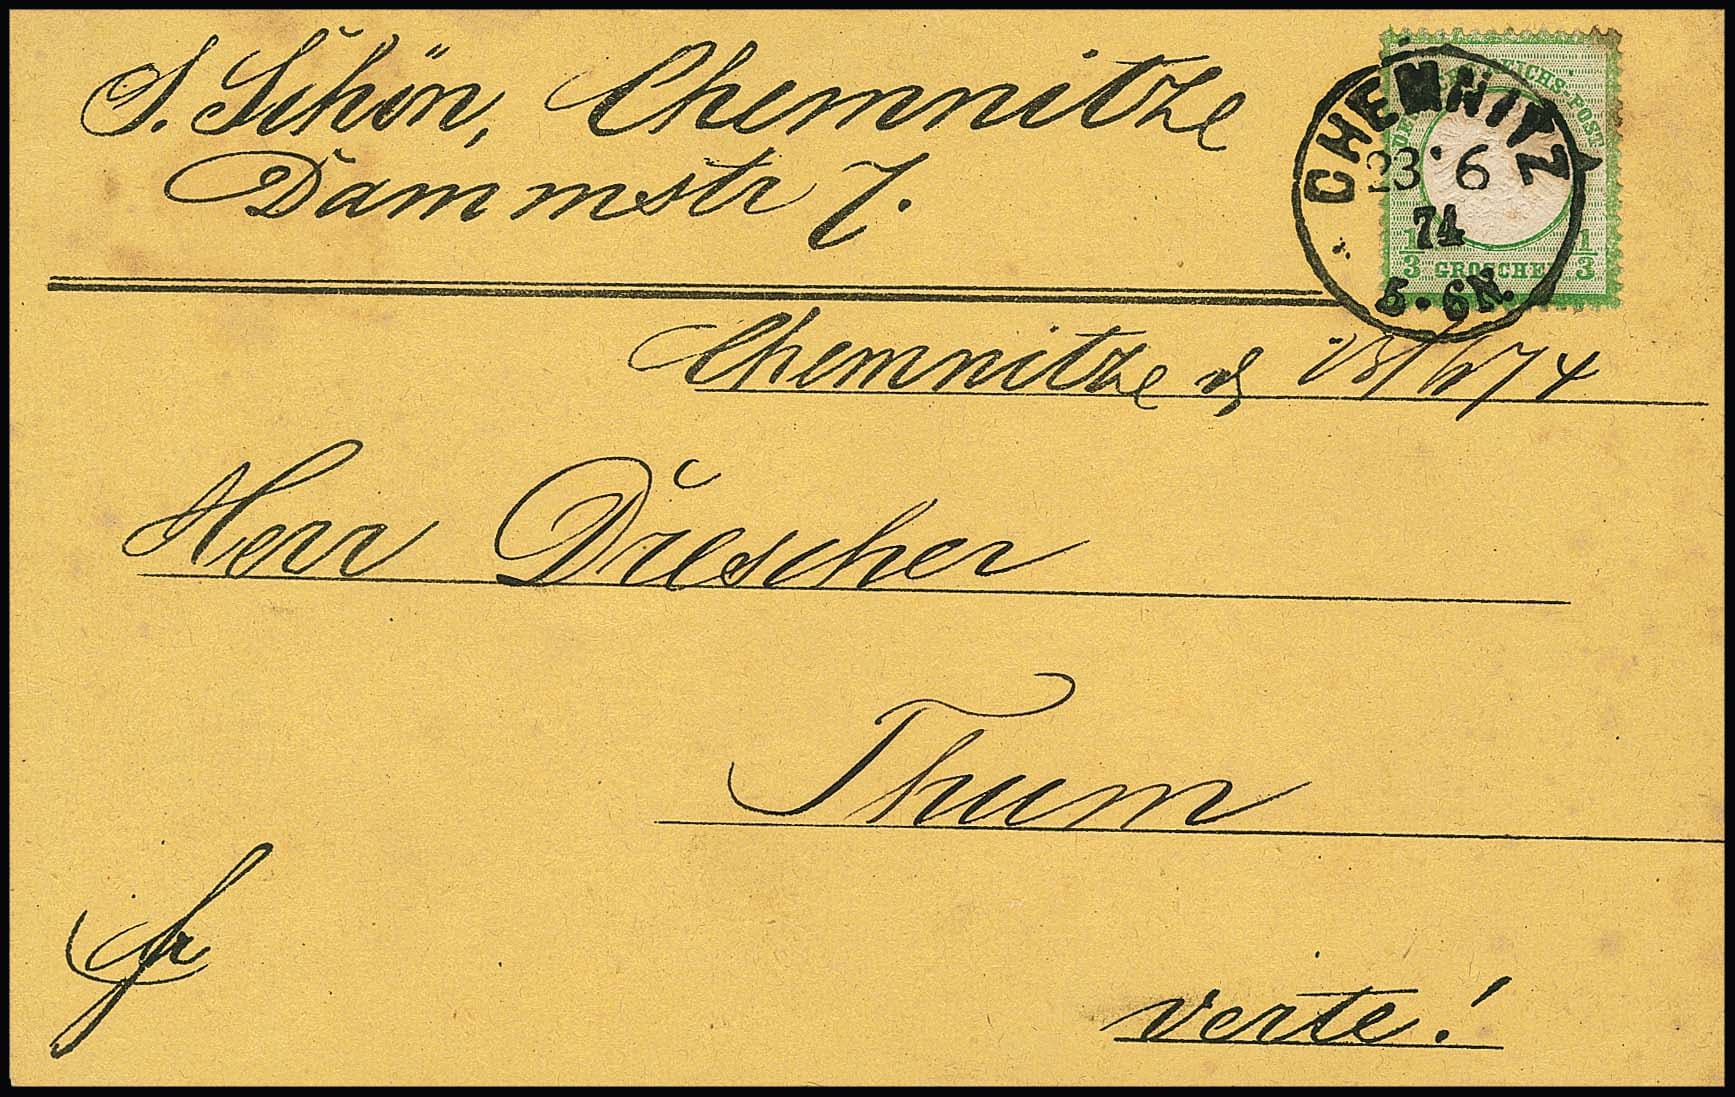 S. Schön, Chemnitze
Dammstr 7.
DEUTSCHE REICHS-POST
1/3 GROSCHEN 1/3
CHEMNITZ
23 6
74
5-6N.
Chemnitze d, 23/6 74
Herr Drescher
Thum
fr
verte!